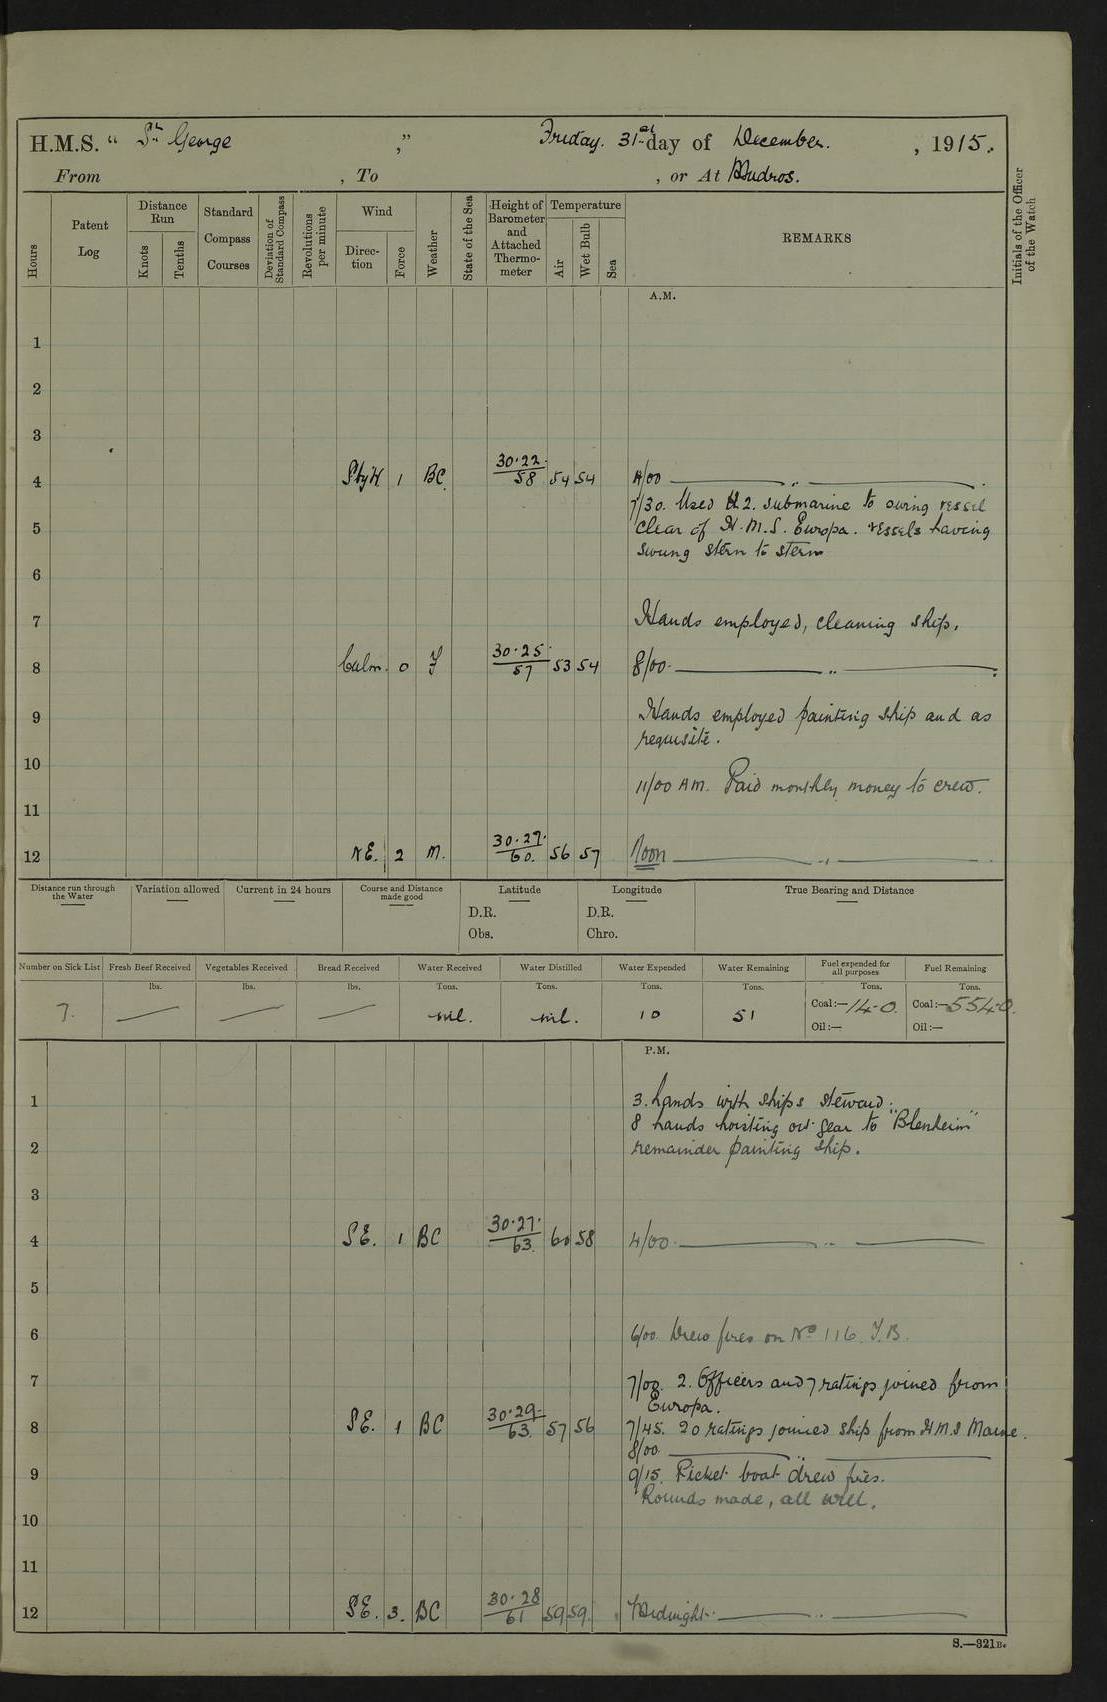 H.M.S. “ St. George ” Friday. 31st day of December. , 1915.
From , To , or At Mudros.
Hours
Patent Log
Distance Run
Knots
Tenths
Standard Compass Courses
Deviation of Standard Compass
Revolutions per minute
Wind
Direction
Force
Weather
State of the Sea
Height of Barometer and Attached Thermometer
Temperature
Air
Wet Bulb
Sea
REMARKS
Initials of the Officer of the Watch
A.M.
1
2
3
4 SbyW 1 BC. 30.22 58 54 54 4/00 ——— „ ———.
7/30. Used H2. submarine to swing vessel
5 clear of H.M.S. Europa. vessels having
swung stern to stern
6
7 Hands employed, cleaning ship.
8 Calm. 0 F 30.25 57 53 54 8/00. ——— „ ———.
9 Hands employed painting ship and as
requisite.
10
11/00 AM. Paid monthly money to crew.
11
12 NE. 2 M. 30.27. 60. 56 57 Noon ——— „ ———.
Distance run through the Water
Variation allowed
Current in 24 hours
Course and Distance made good
Latitude
D.R.
Obs.
Longitude
D.R.
Chro.
True Bearing and Distance
Number on Sick List
Fresh Beef Received
Vegetables Received
Bread Received
Water Received
Water Distilled
Water Expended
Water Remaining
Fuel expended for all purposes
Fuel Remaining
lbs. lbs. lbs. Tons. Tons. Tons. Tons. Tons. Tons.
7. — — — nil. nil. 10 51 Coal:—14.0. Coal:—554.0.
Oil:— Oil:—
P.M.
1 3. hands with ships steward.
8 hands hoisting out gear to "Blenheim"
2 remainder painting ship.
3
4 SE. 1 BC 30.27. 63. 60 58 4/00. ——— „ ———
5
6 6/00. Drew fires on No 116. T.B.
7 7/00. 2. Officers and 7 ratings joined from
Europa.
8 SE. 1 BC 30.29. 63. 57 56 7/45. 20 ratings joined ship from H.M.S Maine.
8/00. ——— „ ———
9 9/15. Picket boat drew fires.
Rounds made, all well.
10
11
12 SE. 3. BC 30.28 61 59 59. Midnight. ——— „ ———
S.—321B.